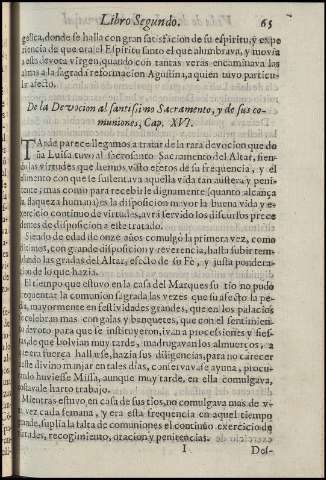 Libro Segundo. 65
gelica, donde se halla con gran satisfacion de su espiritu, y expe
riencia de que era el Espiritu santo el que alumbrava, y movia
a esta devota virgen, quando con tantas veras encaminava las
almas a la sagrada reformacion Agustina, a quien tuvo particu-
lar afecto.
De la Devocion al santissimo Sacramento, y de sus co-
muniones, Cap. XVI.
TArde parece llegamos a tratar de la rara devocion que do
ña Luisa tuvo al sacrosanto Sacramento del Altar, sien
las virtudes que hemos visto efetos de su frequencia, y el
mento con que se sustentava aquella vida tan austera y peni-
tente; mas como para recebirle dignamente (quanto alcança
la flaqueza humana) es la disposicion mayor la buena vida y e-
xercicio continuo de virtudes, avrà servido los discursos prece
dentes de disposicion a este tratado.
Siendo de edad de onze años comulgò la primera vez, como
diximos, con grande disposicion y reverencia, hasta subir tem-
blando las gradas del Altar, efecto de su Fè, y justa pondera-
cion de lo que hazia.
El tiempo que estuvo en la casa del Marques su tio no pudo
frequentar la comunion sagrada las vezes que su afecto la pe-
dia, mayormente en festividades grandes, que en los palacios
celebran mas con galas y banquetes, que con el sentimien
devoto para que se instituyeron, ivan a processiones y fies-
tas, de que bolvian muy tarde, madrugavan los almuerços, a
era fuerça hallarse, hazia sus diligencias, para no carecer
este divino manjar en tales dias, conservavase ayuna, procu-
rando huviesse Missa, aunque muy tarde, en ella comulgava,
costavale harto trabajo.
Mientras estuvo en casa de sus tios, no comulgava mas de v-
na vez cada semana, y era esta frequencia en aquel tiempo
grande, suplia la falta de comuniones el continuo exercicio de
virtudes, recogimiento, oracion y penitencias.
I Des-